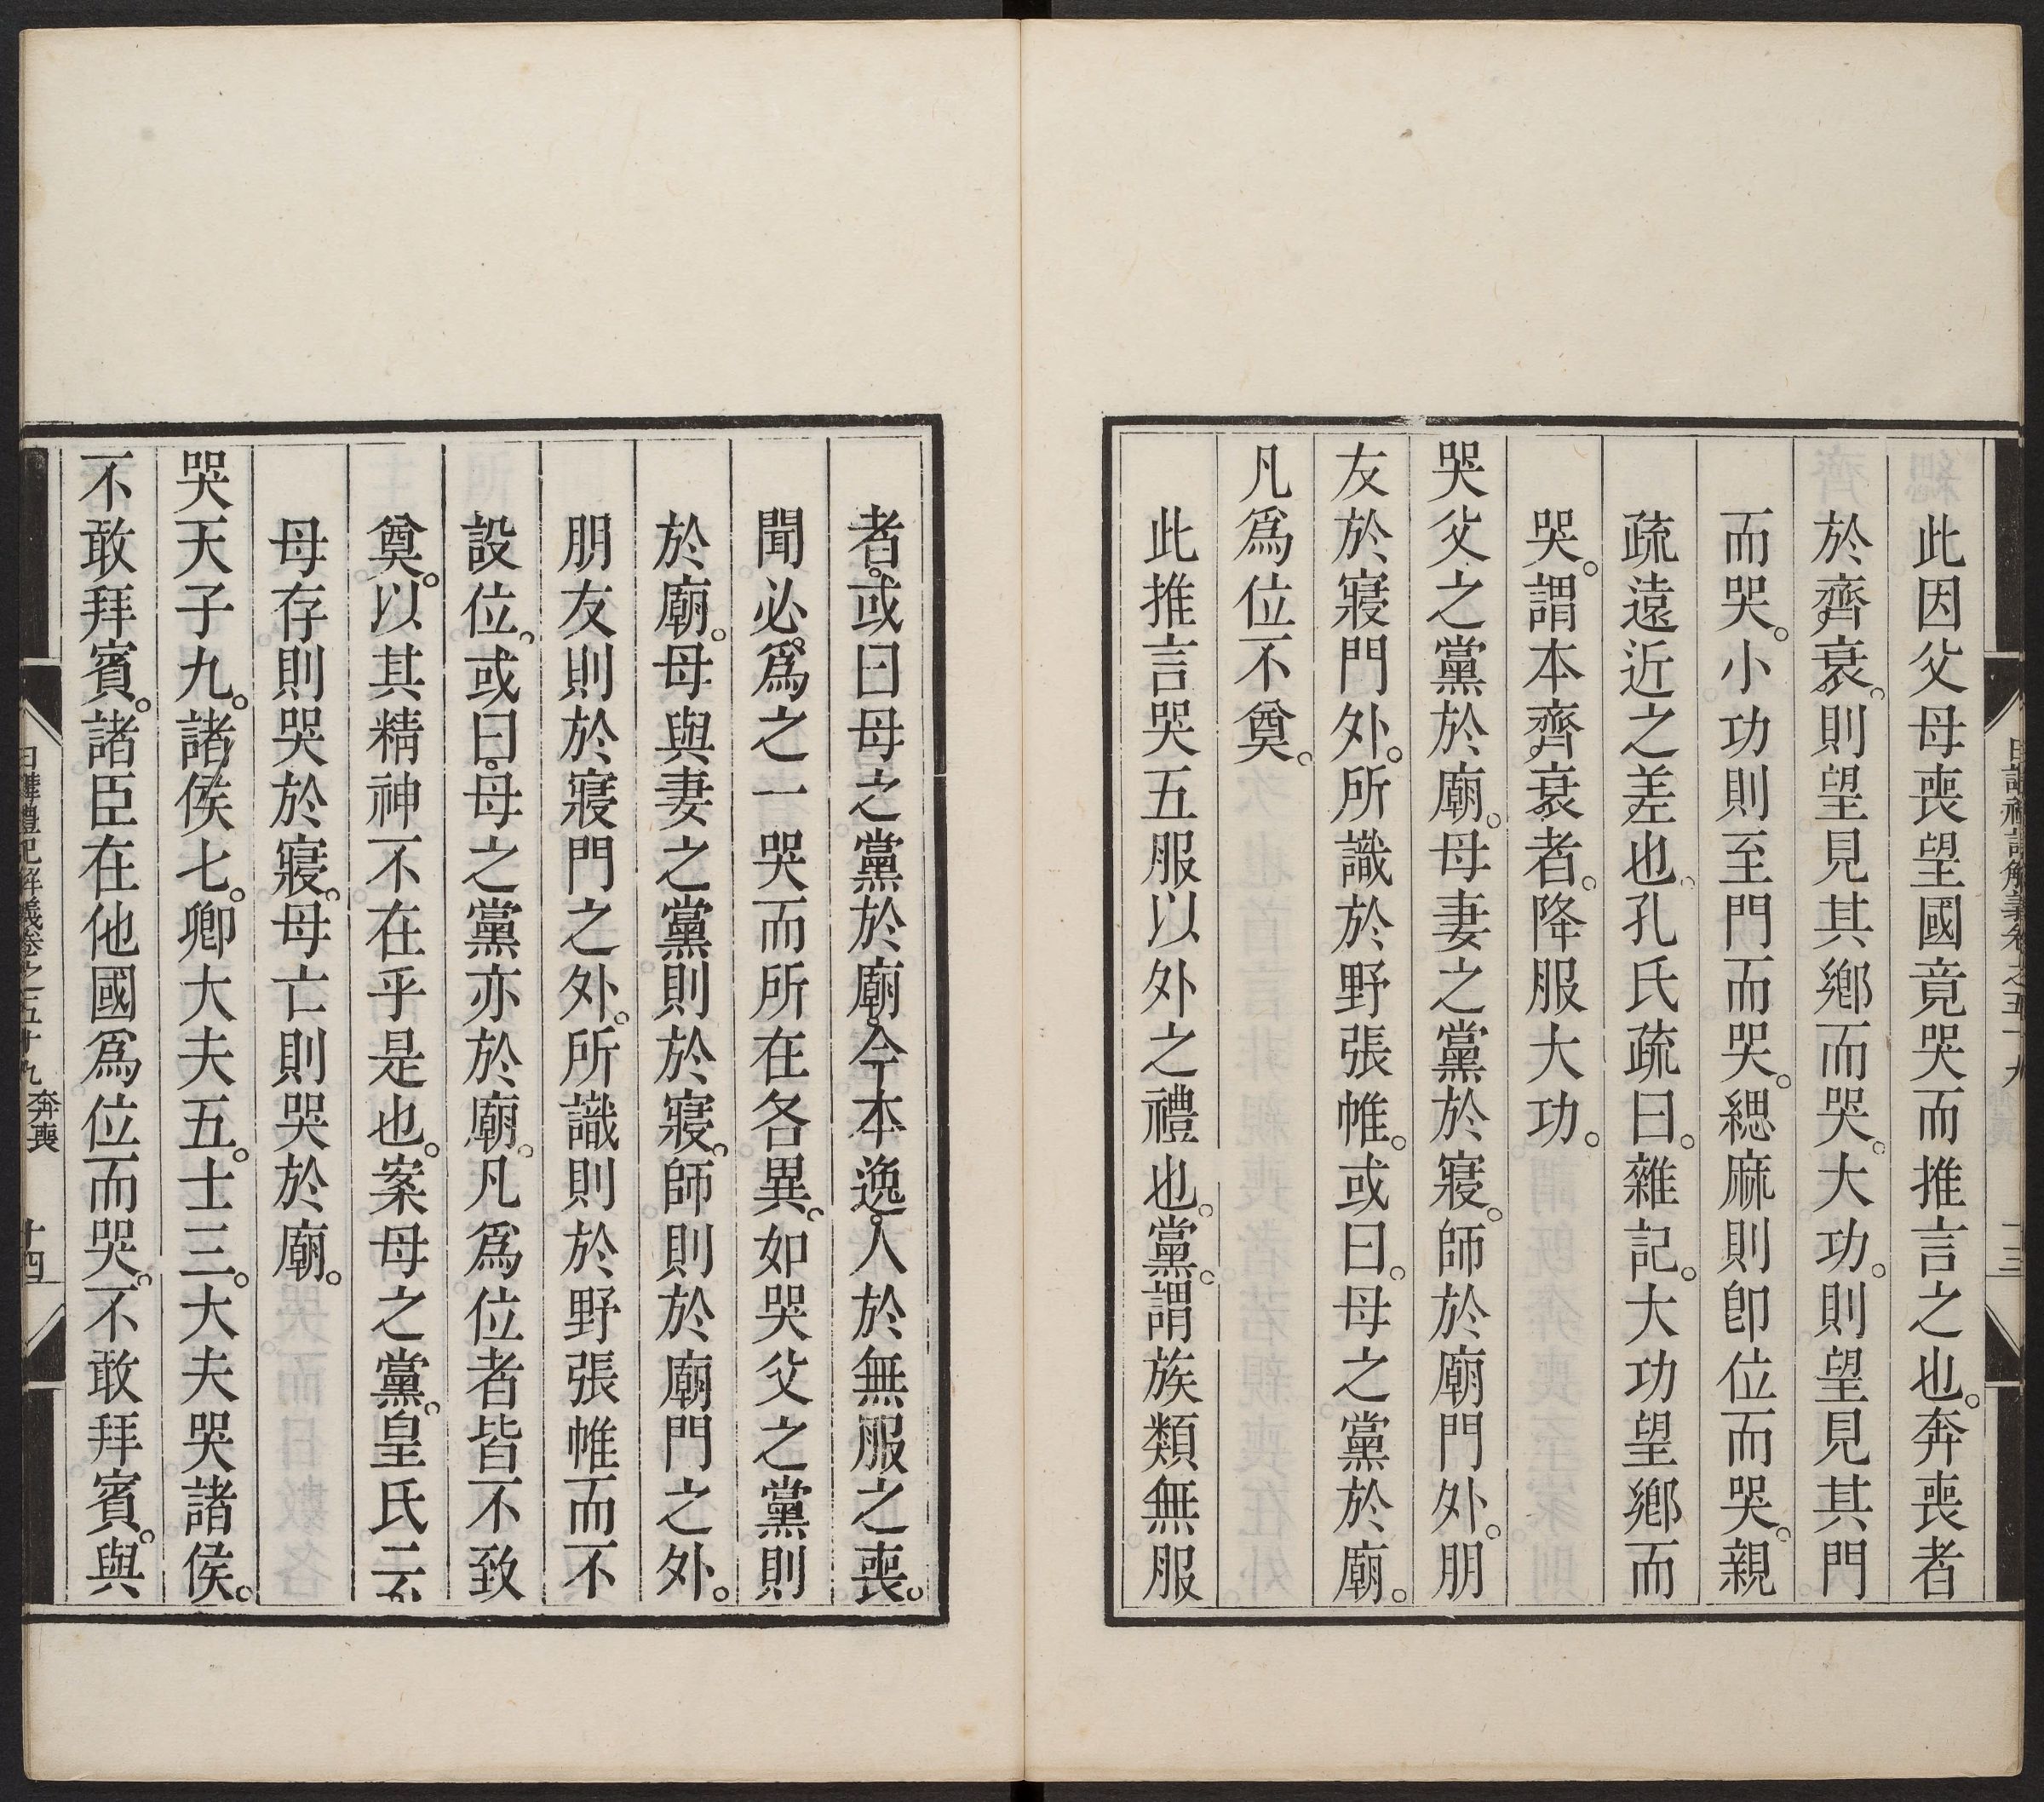 此因父母喪望國竟哭而推言之也。奔喪者
於齊衰。則望見其鄉而哭。大功。則望見其門
而哭。小功則至門而哭。緦麻則卽位而哭。親
疏遠近之差也。孔氏疏曰。雜記。大功望鄉而
哭。謂本齊衰者。降服大功。
哭父之黨於廟。母妻之黨於寢。師於廟門外。朋
友於寢門外。所識於野張帷。或曰。母之黨於廟。
凡爲位不奠。
此推言哭五服以外之禮也。黨。謂族類無服
者。或曰母之黨於廟。今本逸。人於無服之喪。
聞必爲之一哭而所在各異。如哭父之黨則
於廟。母與妻之黨則於寢。師則於廟門之外。
朋友則於寢門之外。所識則於野張帷而不
設位。或曰。母之黨亦於廟。凡爲位者皆不致
奠。以其精神不在乎是也。案母之黨。皇氏云
母存則哭於寢。母亡則哭於廟。
哭天子九。諸侯七。卿大夫五。士三。大夫哭諸侯。
不敢拜賓。諸臣在他國爲位而哭。不敢拜賓。與
日講禮記解義卷之五十九 奔喪 十四